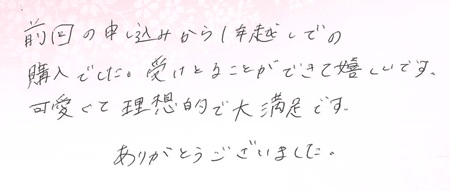 前回の申し込みから1年越しでの
購入でした。受けとることができて嬉しいです。
可愛くて理想的で大満足です。
ありがとうございました。